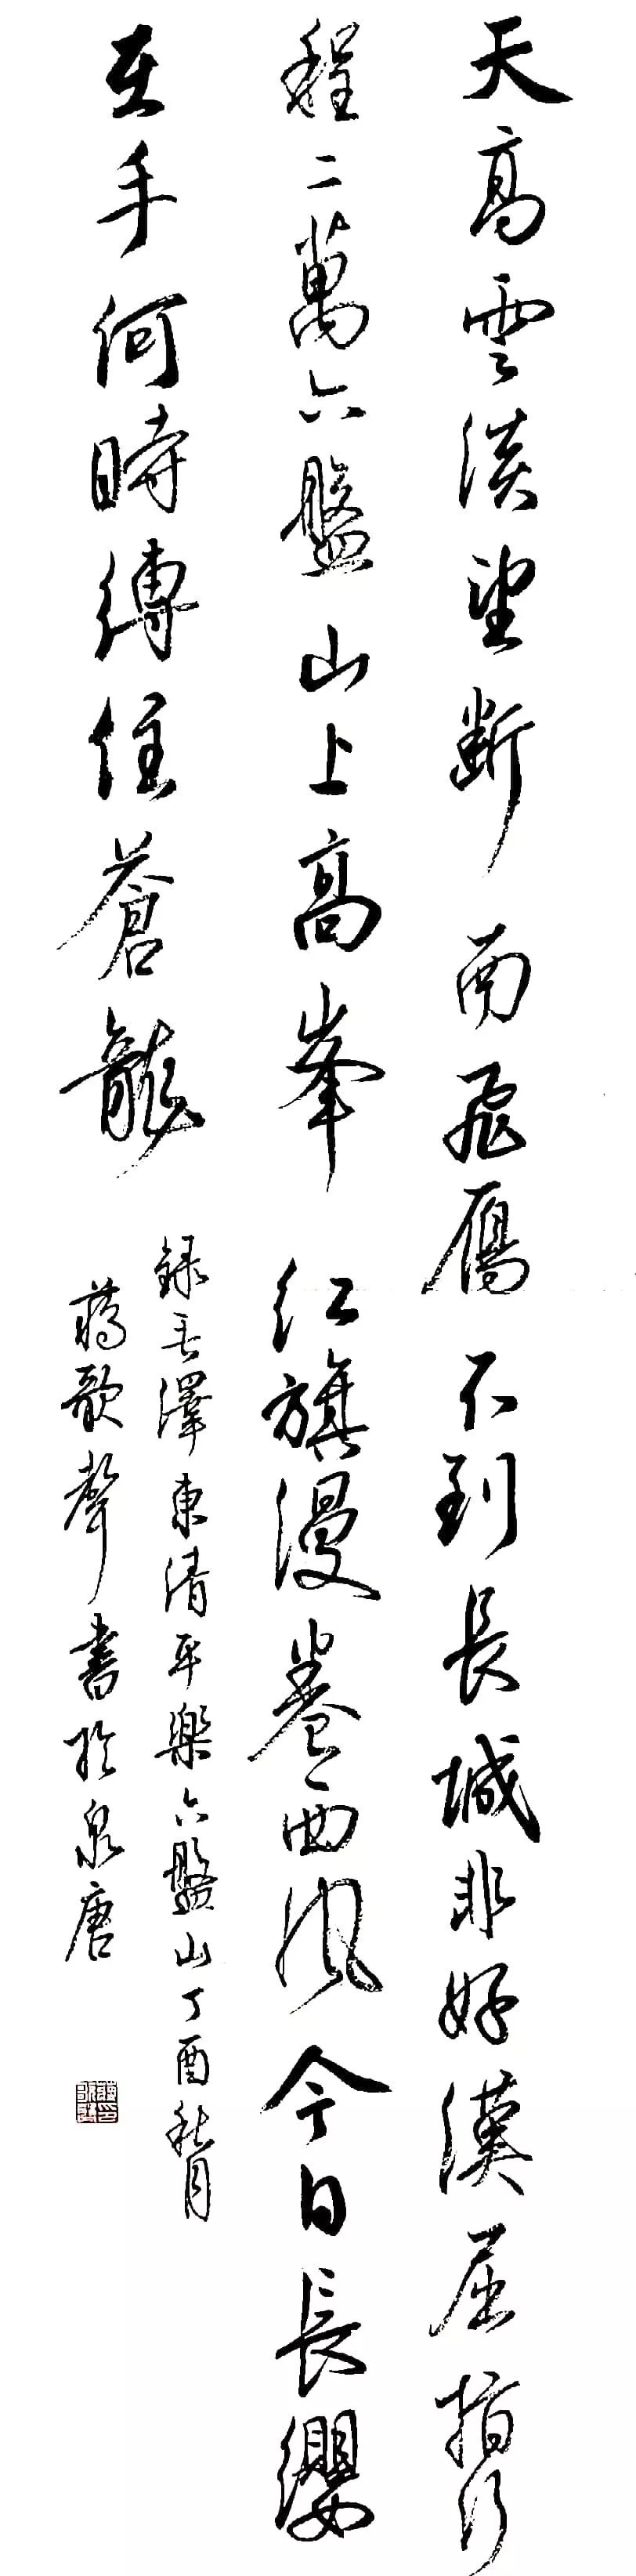 天高雲淡望斷南飛鴈不到長城非好漢屈指行
程二萬六盤山上高峯紅旗漫卷西風今日長纓
在手何時縛住蒼龍
錄毛澤東清平樂六盤山丁酉秋月
蔣歌聲書於泉唐